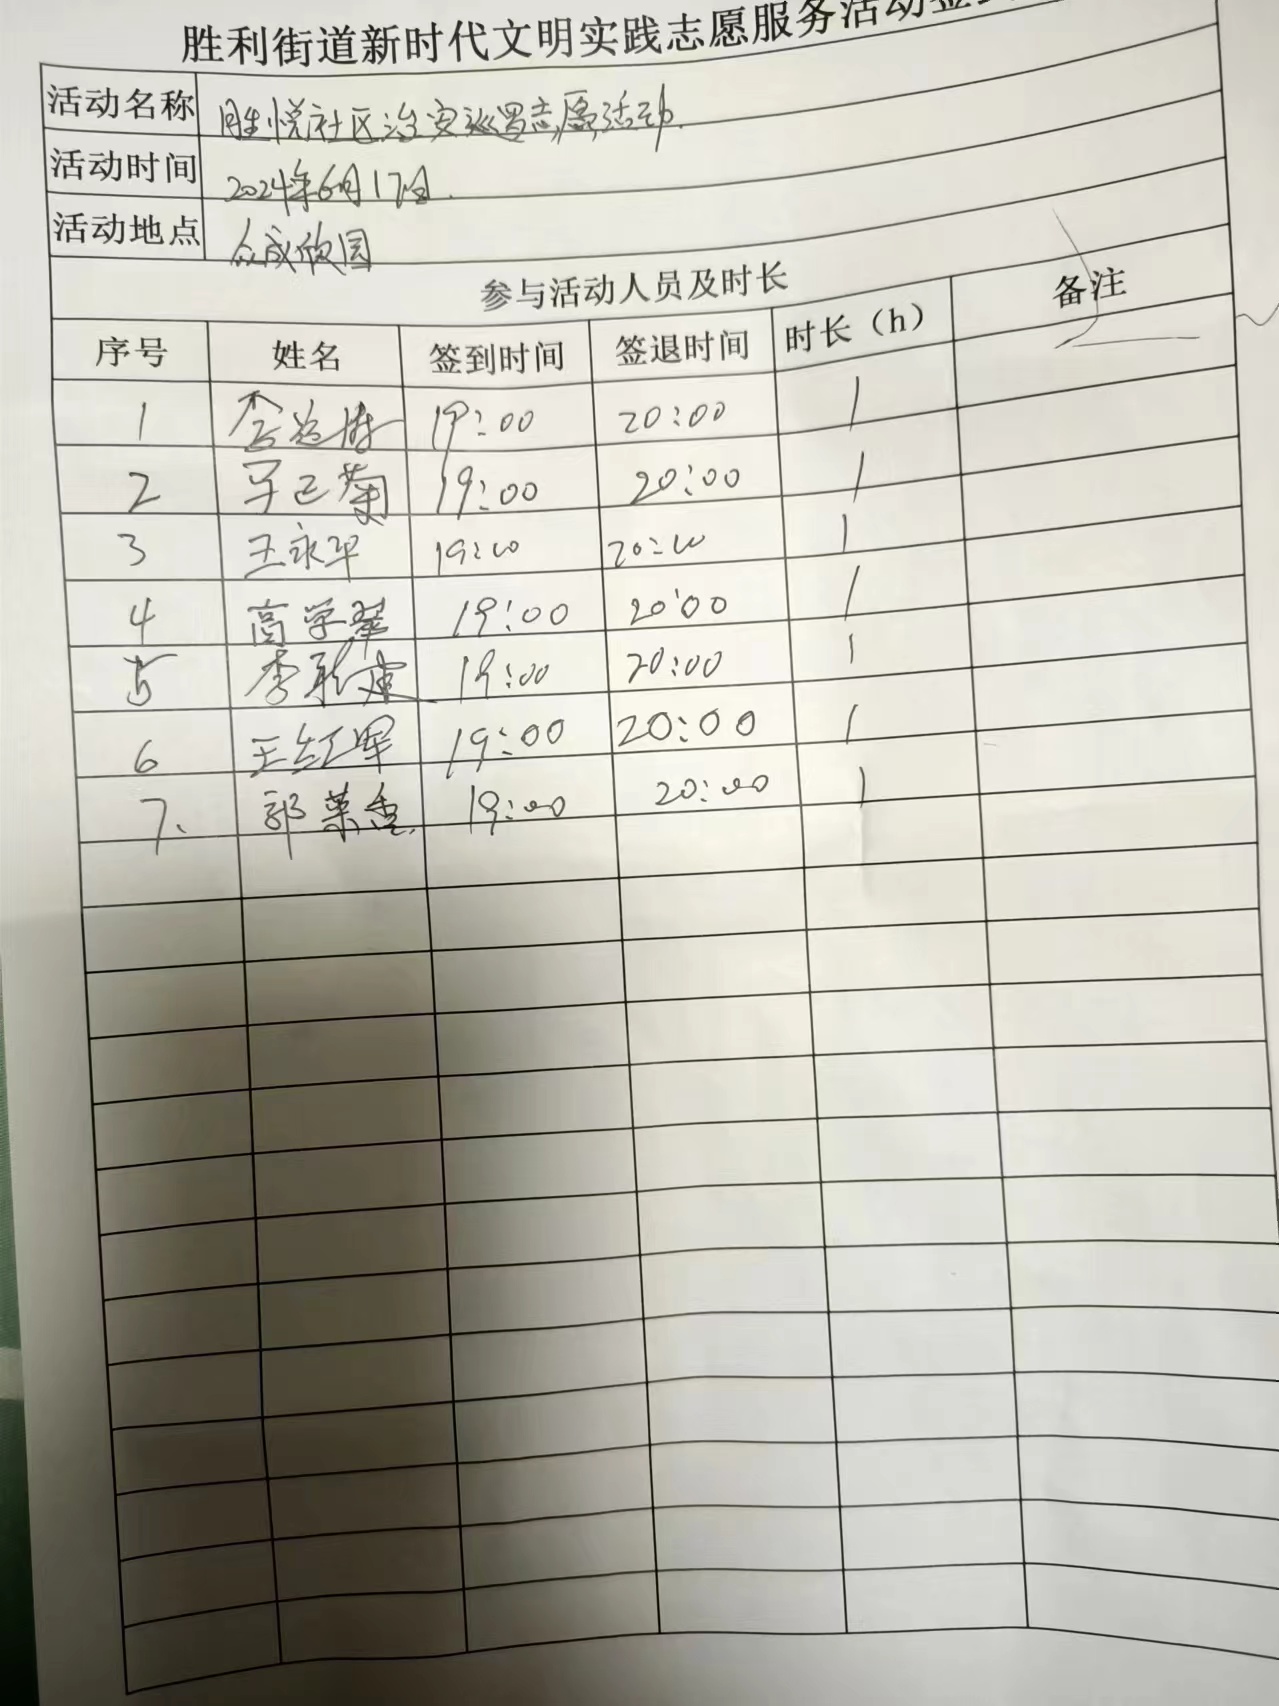 胜利街道新时代文明实践志愿服务活动签到
活动名称 胜悦社区治安巡逻志愿活动.
活动时间 2024年6月17日.
活动地点 众成欣园
参与活动人员及时长
序号 姓名 签到时间 签退时间 时长（h） 备注
1 19:00 20:00 1
2 19:00 20:00 1
3 王永华 19:00 20:00 1
4 高学翠 19:00 20:00 1
5 李 19:00 20:00 1
6 王红军 19:00 20:00 1
7、 郭菜香. 19:00 20:00 1